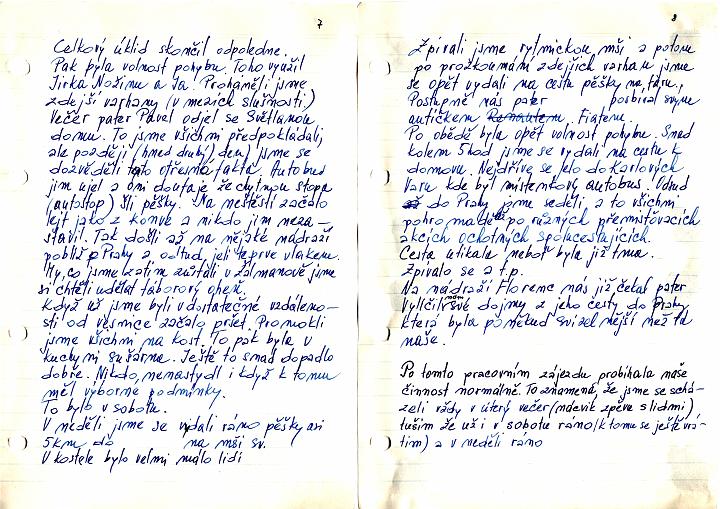 7
Celkový úklid skončil odpoledne.
Pak byla volnost pohybu. Toho využil
Jirka Nožinu a Ja. Proháněli jsme
zdejší varhany (v mezích slušnosti.)
Večer pater Pavel odjel se Světlanou
domu. To jsme všichni předpokládali,
ale později (hned druhý den) jsme se
dozvěděli tato otřesná fakta. Autobus
jim ujel a oni doufaje že chytnou stopa
(autostop) šli pěšky. Na neštěstí začalo
lejt jako z konve a nikdo jim neza-
stavil. Tak došli až na nějaké nádraží
poblíž Prahy a odtud jeli teprve vlakem.
My, co jsme zatim zůstali v Žalmanově jsme
si chtěli udělat táborový oheň.
Když už jsme byli v dostatečné vzdáleno-
sti od vesnice začalo pršet. Promokli
jsme všichni na kost. To pak byla v
kuchyni sušárna. Ještě to snad dopadlo
dobře. Nikdo, nenastydl i když k tomu
měl výborné podmínky.
To bylo v sobotu.
V neděli jsme se vydali ráno pěšky asi
5km do na mši sv.
V kostele bylo velmi málo lidí
8
Zpívali jsme rytmickou mši a potom
po prozkoumání zdejších varhan jsme
se opět vydali na cestu pěšky na faru.
Postupně nás pater posbíral svým
autíčkem Fiatem.
Po obědě byla opět volnost pohybu. Snad
kolem 5hod jsme se vydali na cestu k
domovu. Nejdříve se jelo do Karlových
Varu kde byl místenkový autobus. Odtud
do Prahy jsme seděli, a to všichni
pohromadě po různých přemisťovacích
akcích ochotných spolucestujících.
Cesta utikala neboť byla již tma.
Zpívalo se a t.p.
Na nádraží Florenc nás již čekal pater
Vylíčil nám své dojmy z jeho cesty do Prahy
která byla poněkud svízelnější než ta
naše.
Po tomto pracovním zájezdu probíhala naše
činnost normálně. To znamená, že jsme se schá-
zeli vždy v úterý večer (nácvik zpěvu s lidmi)
tuším že už i v sobotu ráno (k tomu se ještě vrá-
tím) a v neděli ráno